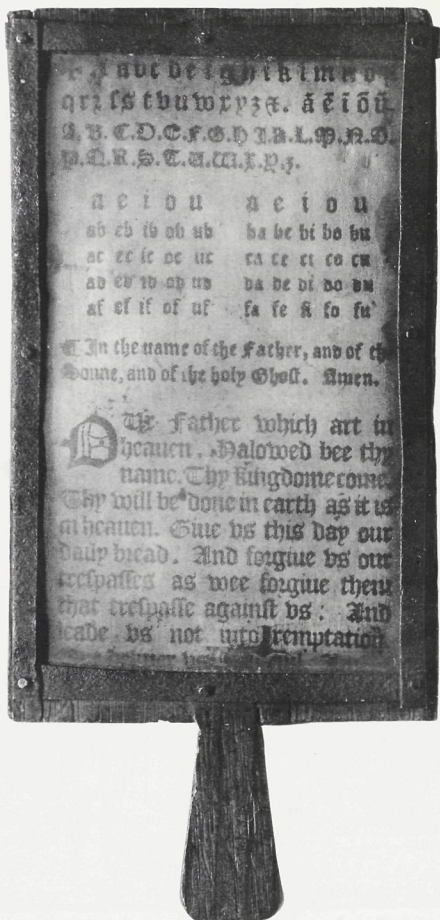 a a b c d e f g h i k l m n o p
q r ꝛ ſ s t v u w x y z &. ã ẽ ĩ õ ũ
A.B.C.D.E.F.G.H.I.K.L.M.N.O.
P.Q.R.S.T.U.W.X.Y.Z.
a e i o u a e i o u
ab eb ib ob ub ba be bi bo bu
ac ec ic oc uc ca ce ci co cu
ad ed id od ud da de di do du
af ef if of uf fa fe fi fo fu
¶ In the name of the Father, and of the
Sonne, and of the holy Ghoſt. Amen.
OUr Father which art in
heauen. Halowed bee thy
name. Thy kingdome come.
Thy will be done in earth as it is
in heauen. Giue vs this day our
daily bread. And forgiue vs our
treſpaſſes as wee forgiue them
that treſpaſſe againſt vs: And
leade vs not into temptation